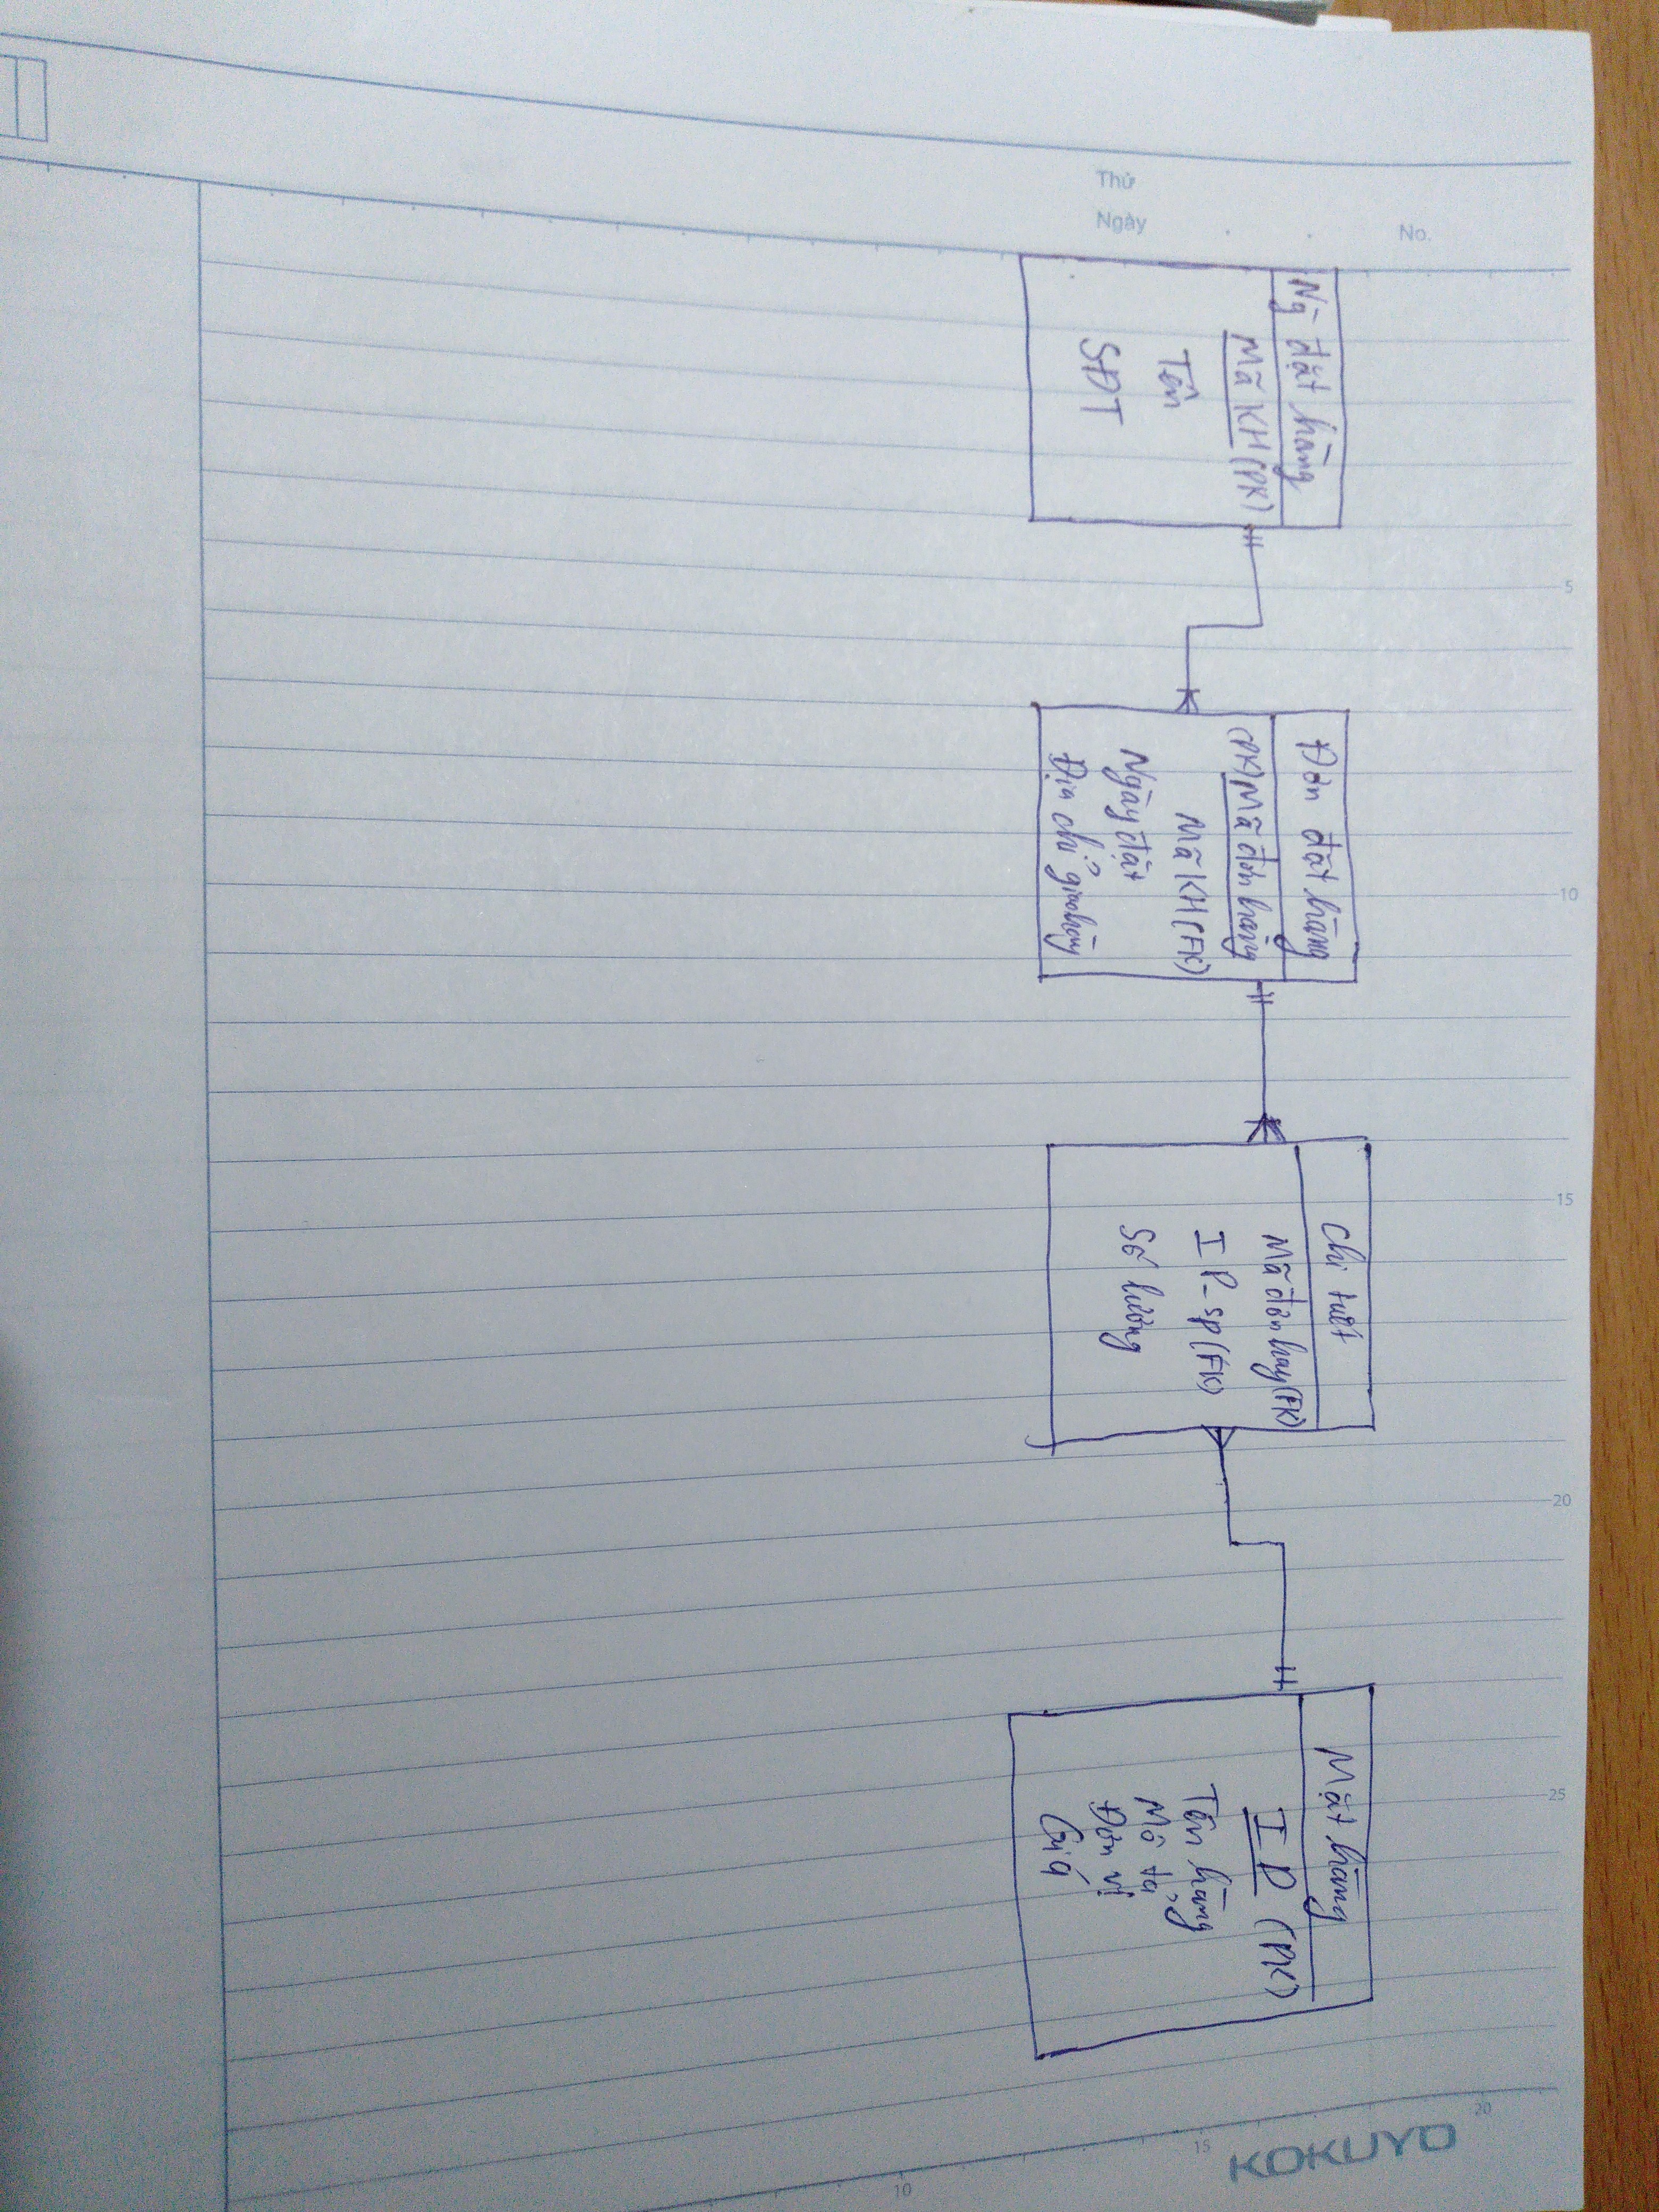 Thứ
Ngày
No.
Ng đặt hàng
Mã KH (PK)
Tên
SĐT
Đơn đặt hàng
(PK) Mã đơn hàng
Mã KH (FK)
Ngày đặt
Địa chỉ giao hàng
Chi tiết
Mã đơn hàng (FK)
IP_sp (FK)
Số lượng
Mặt hàng
IP (PK)
Tên hàng
Mô tả
Đơn vị
Giá
5
10
15
20
25
10
15
20
KOKUYO